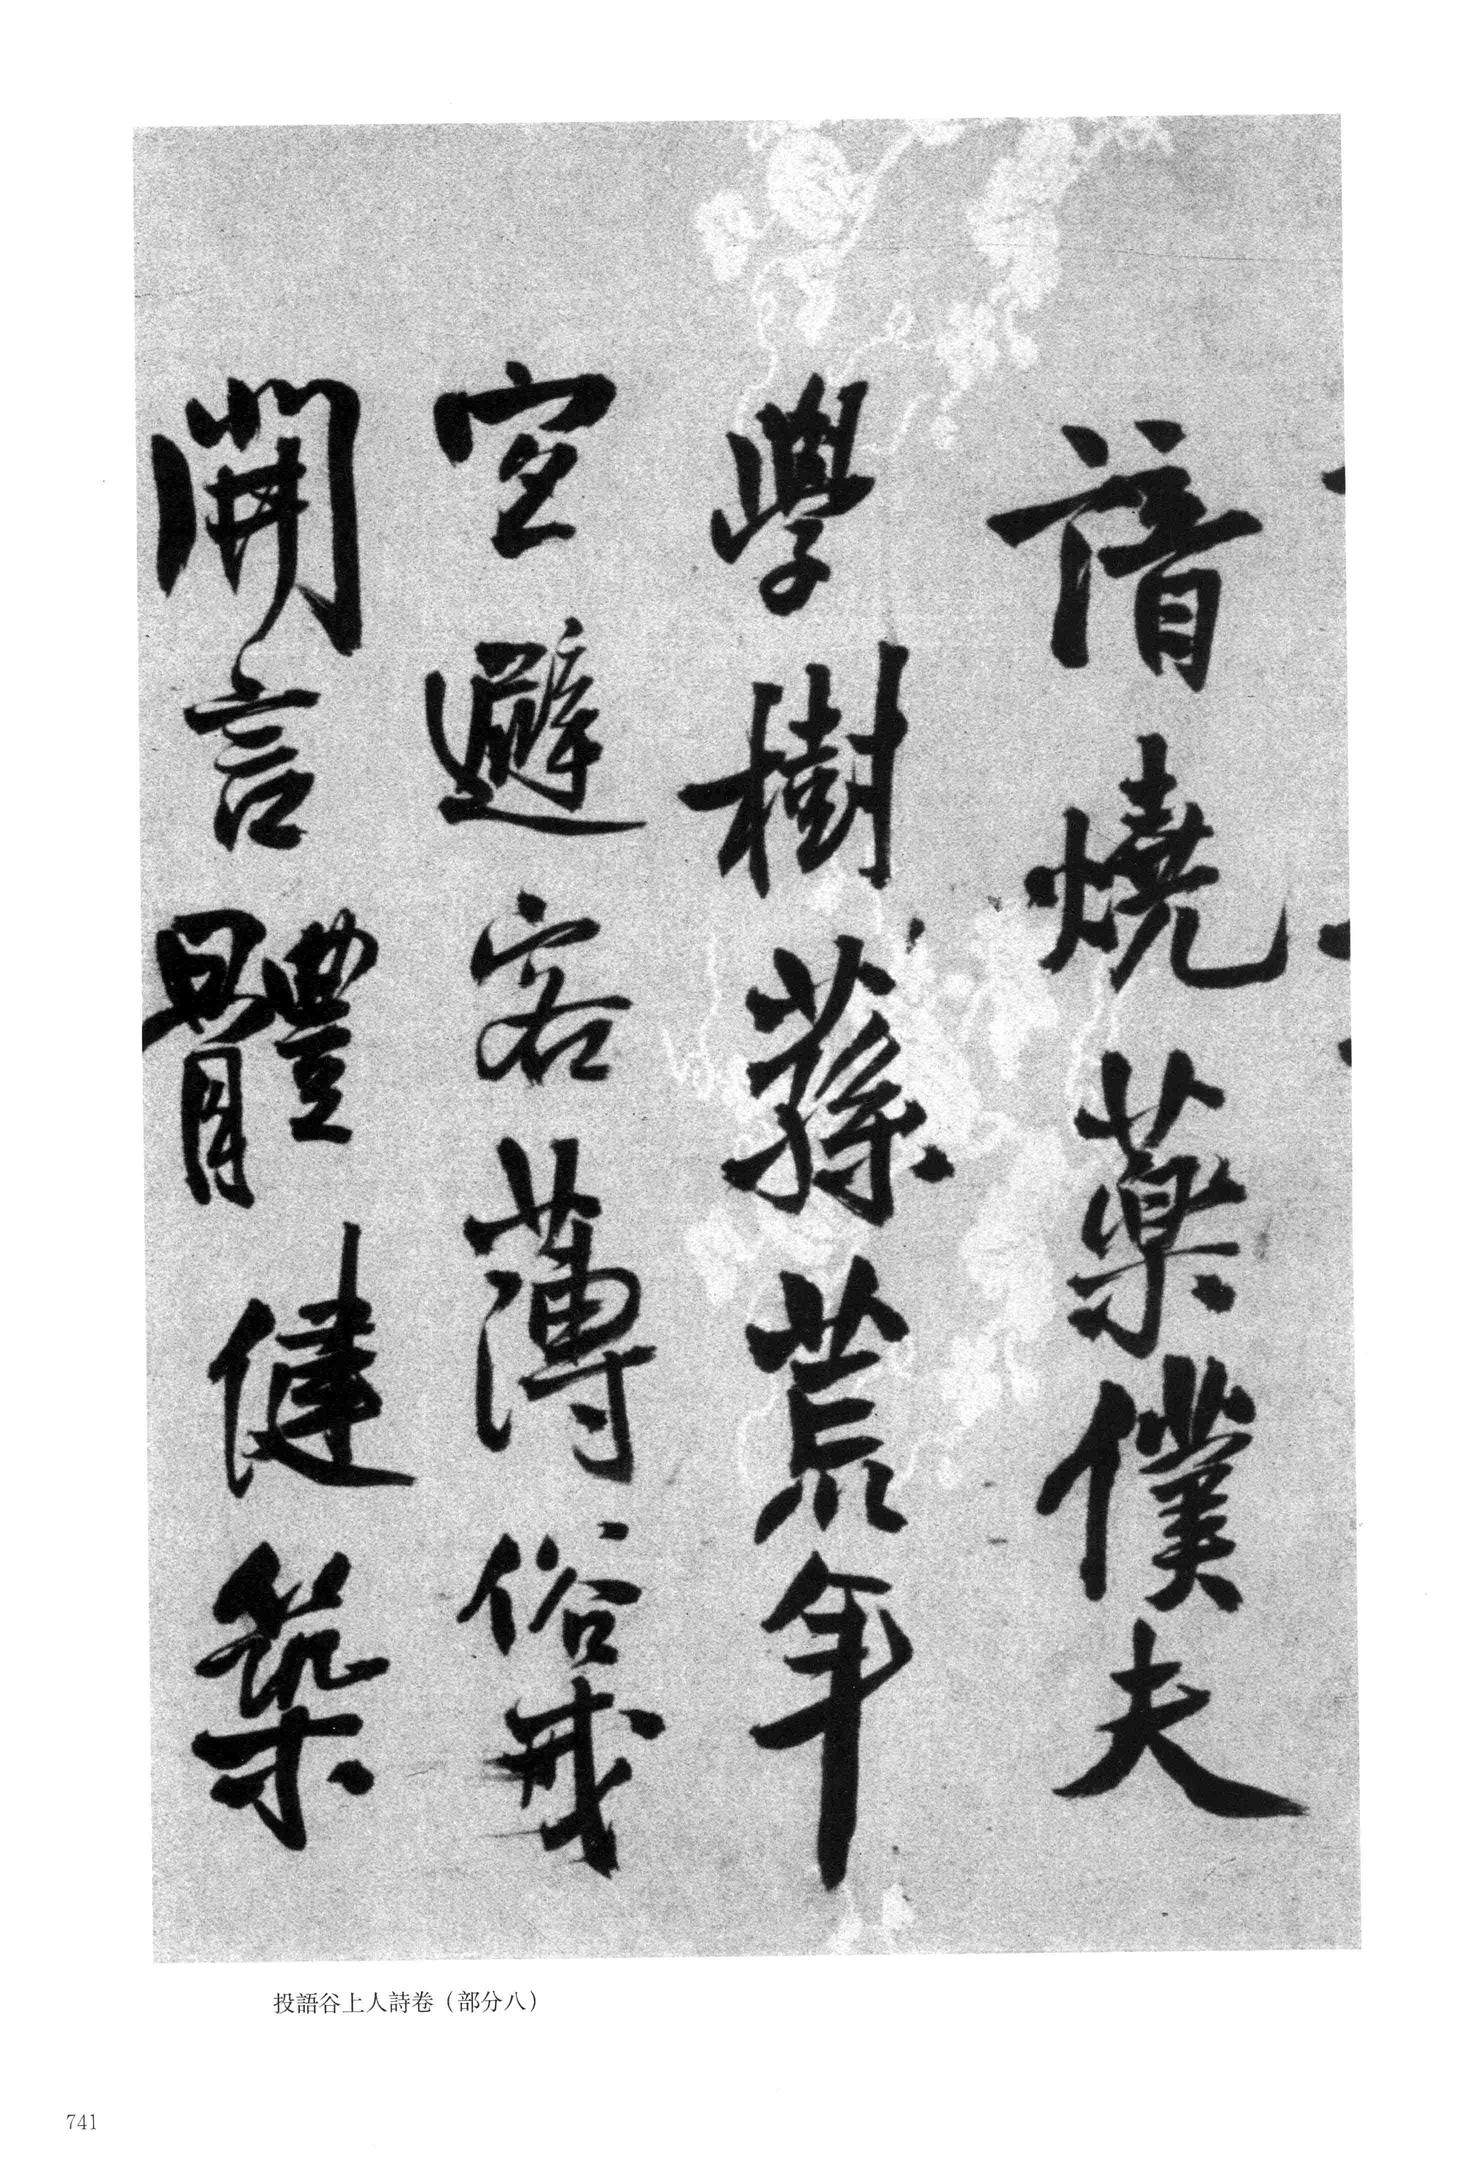 諳燒藥僕夫
學樹蓀荒年
宜避客薄俗戒
開言體健築
投語谷上人詩卷（部分八）
741